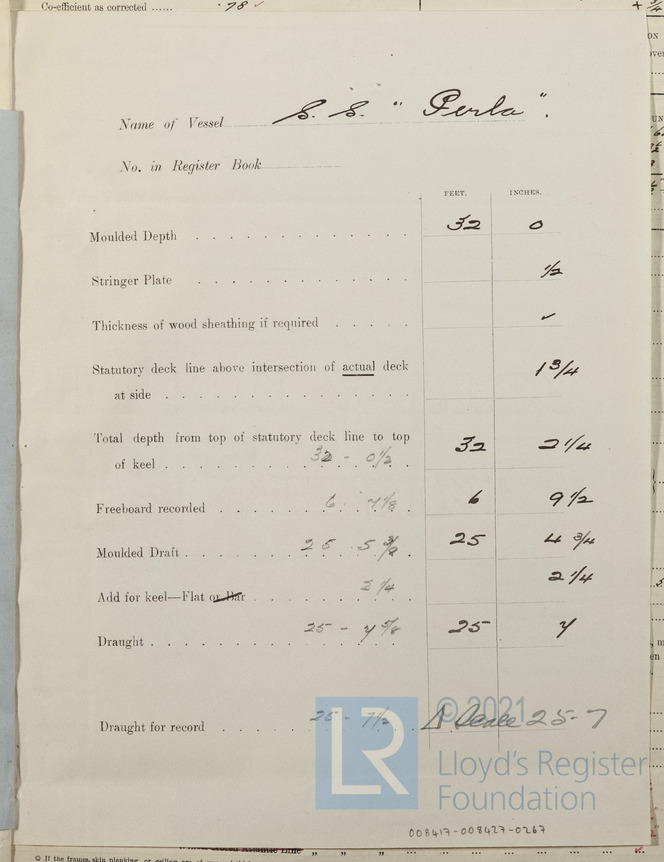 Co-efficient as corrected ...... .78 ✓
Name of Vessel S. S. "Perla".
No. in Register Book
FEET. INCHES.
Moulded Depth 32 0
Stringer Plate 1/2
Thickness of wood sheathing if required ✓
Statutory deck line above intersection of actual deck 1 3/4
at side
Total depth from top of statutory deck line to top 32 2 1/4
of keel 32 - 0 1/2
Freeboard recorded 6 9 1/2
Moulded Draft 25 5 3/8 25 4 3/4
Add for keel—Flat or Bar 2 1/4 2 1/4
Draught 25 - 7 5/8 25 7
Draught for record 25 - 7 1/2 Δ Scale 25-7
© 2021
LR
Lloyd's Register
Foundation
008417-008427-0267